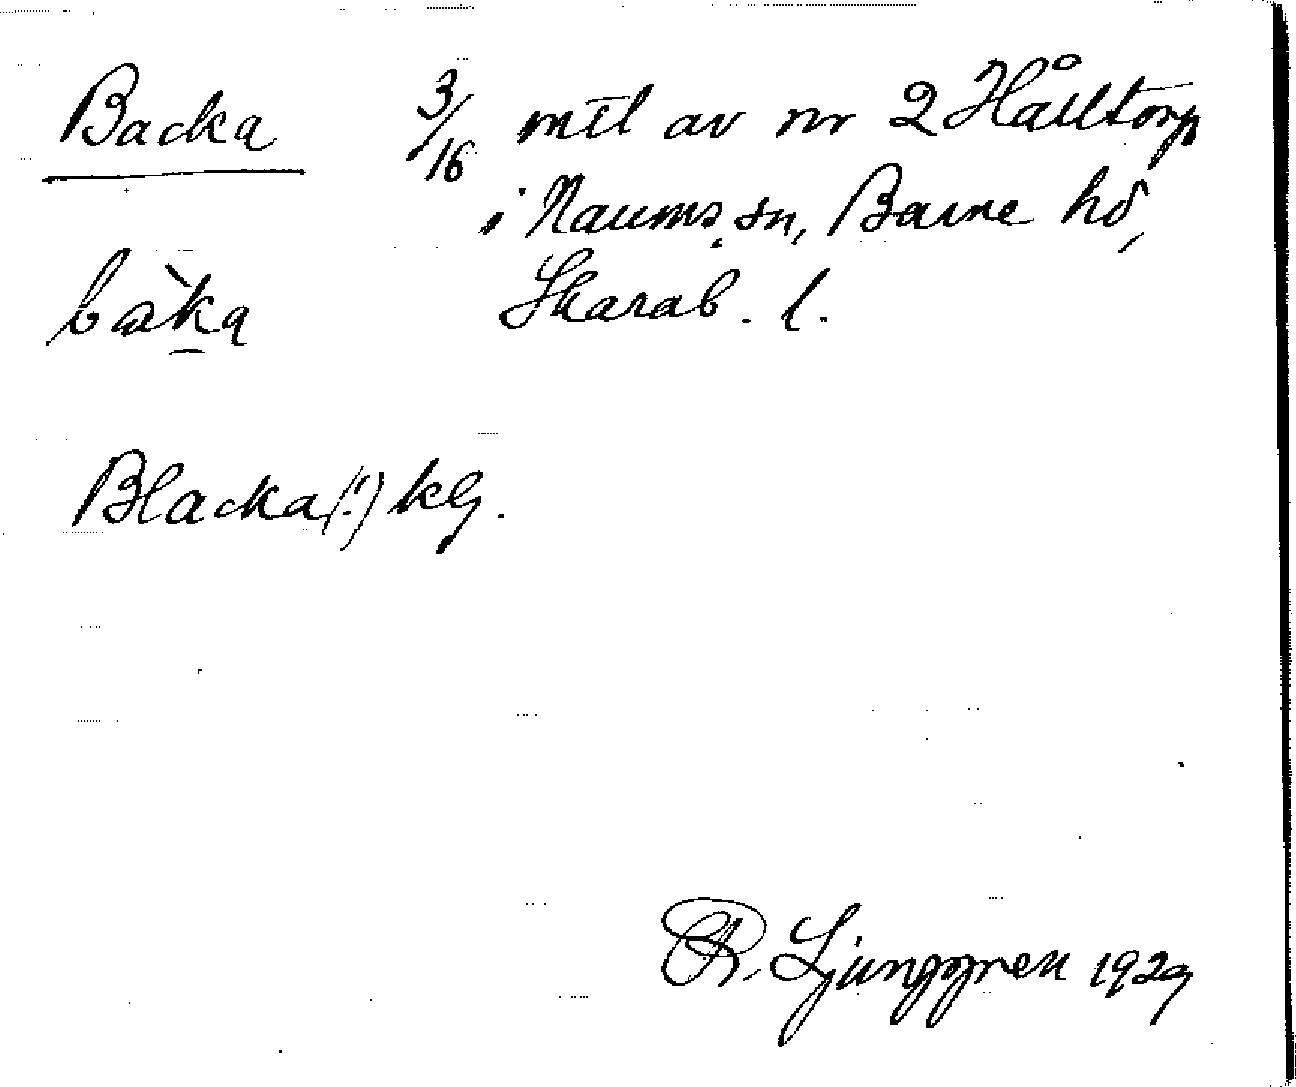 Backa 3/16 mtl av nr 2 Hålltorp
i Naums sn, Barne hd,
bàk̠a Skarab. l.
Blacka(!) kg.
R. Ljunggren 1929